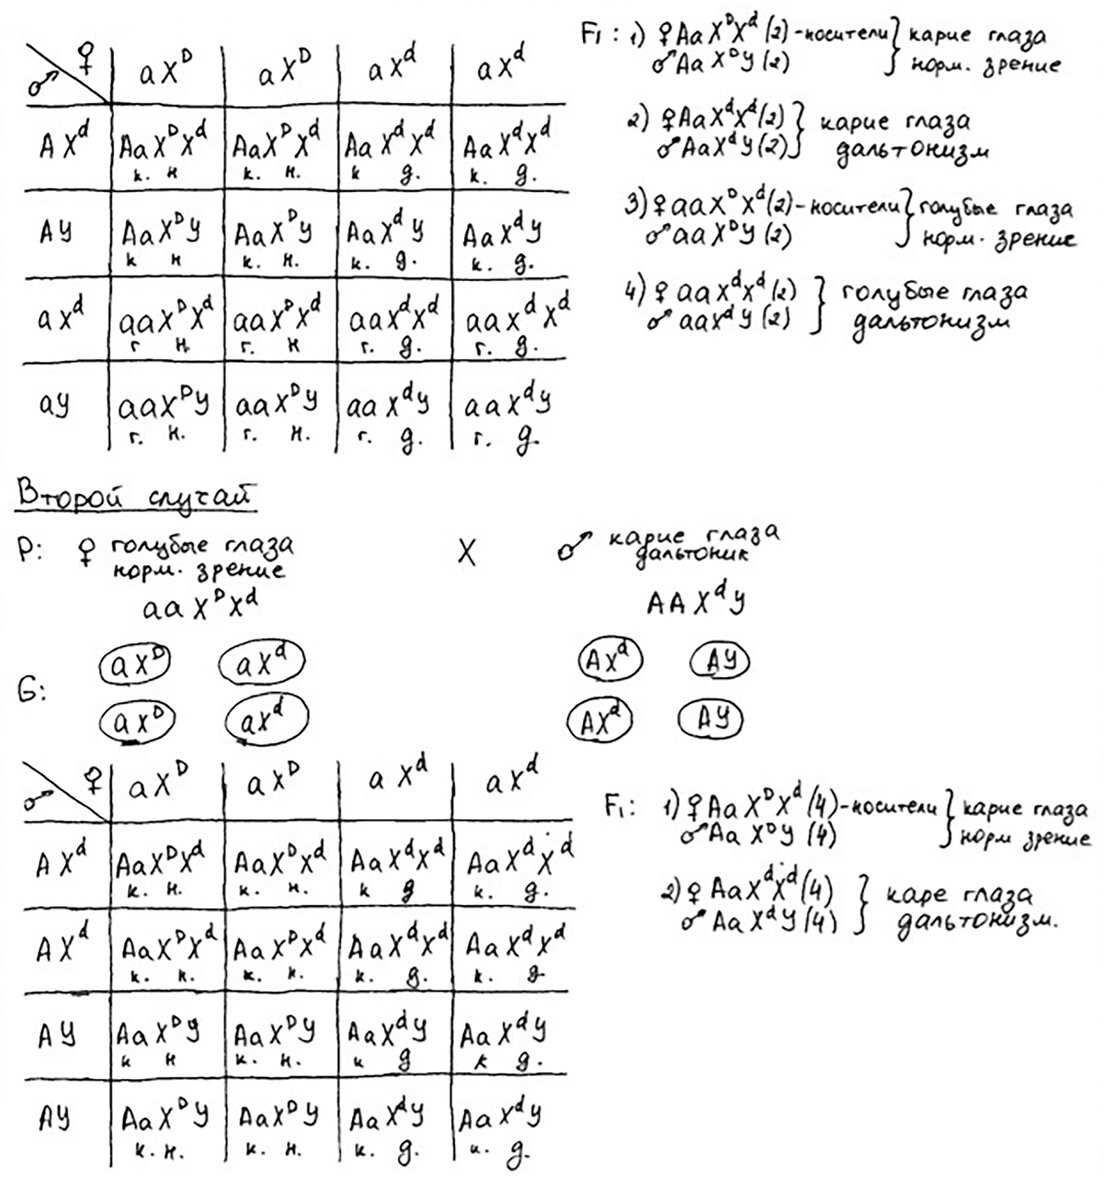 ♀ aX^D aX^D aX^d aX^d
♂
AX^d AaX^DX^d AaX^DX^d AaX^dX^d AaX^dX^d
к. н к. н. к g. к. g.
AY AaX^DY AaX^DY AaX^dY AaX^dY
к н к. н. к. g. к. g.
aX^d aaX^DX^d aaX^DX^d aaX^dX^d aaX^dX^d
г н. г. н г. g. г. g.
aY aaX^DY aaX^DY aaX^dY aaX^dY
г. н. г. н. г. g. г. g.
F1: 1) ♀AaX^DX^d (2)-носители } карие глаза
♂AaX^DY (2) норм. зрение
2) ♀AaX^dX^d (2) } карие глаза
♂AaX^dY (2) дальтонизм
3) ♀aaX^DX^d (2)-носители } голубые глаза
♂aaX^DY (2) норм. зрение
4) ♀aaX^dX^d (2) } голубые глаза
♂aaX^dY (2) дальтонизм
Второй случай
P: ♀ голубые глаза X ♂ карие глаза
норм. зрение дальтоник
aaX^DX^d AAX^dY
G: aX^D aX^d AX^d AY
aX^D aX^d AX^d AY
♀ aX^D aX^D aX^d aX^d
♂
AX^d AaX^DX^d AaX^DX^d AaX^dX^d AaX^dX^d
к. н. к. н. к g к. g.
AX^d AaX^DX^d AaX^DX^d AaX^dX^d AaX^dX^d
к. н. к. н. к. g. к. g
AY AaX^DY AaX^DY AaX^dY AaX^dY
к н к. н. к g к g.
AY AaX^DY AaX^DY AaX^dY AaX^dY
к. н. к. н. к. g. к. g.
F1: 1) ♀AaX^DX^d (4)-носители } карие глаза
♂AaX^DY (4) норм зрение
2) ♀AaX^dX^d (4) } каре глаза
♂AaX^dY (4) дальтонизм.